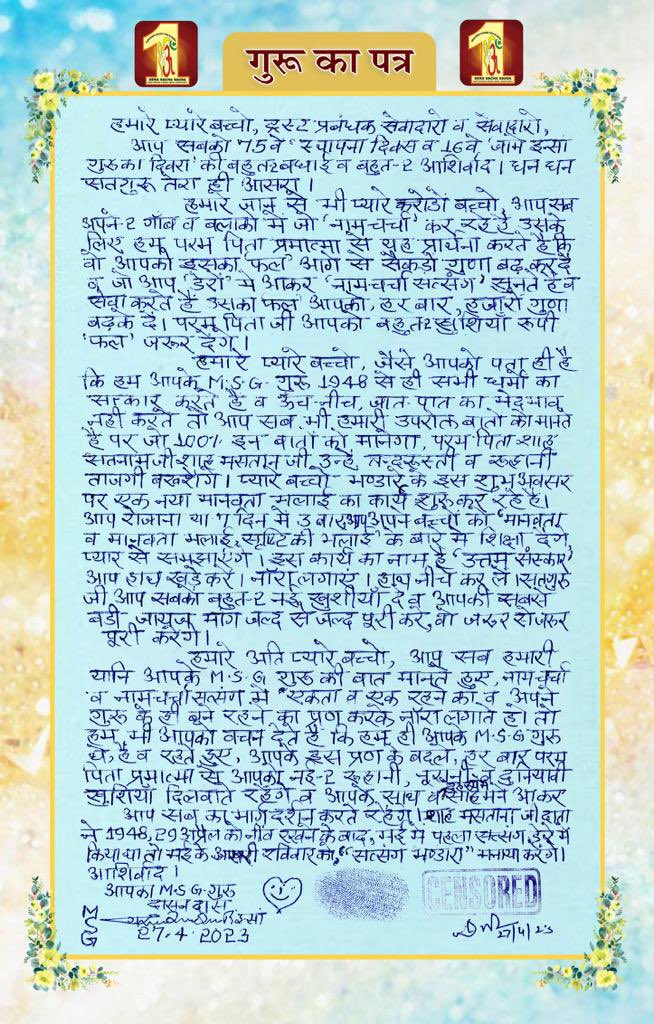 गुरू का पत्र
DERA SACHA SAUDA
DERA SACHA SAUDA
हमारे प्यारे बच्चो, ट्रस्ट प्रबंधक सेवादारो व सेवादारो,
आप सबको 75वे 'स्थापना दिवस व 16वे 'जाम इन्सां
गुरु का दिवस' की बहुत2 बधाई व बहुत-2 आशिर्वाद। धन धन
सतगुरू तेरा ही आसरा।
हमारे जान से भी प्यारे करोडों बच्चो, आप सब
अपने-2 गाँव व बलाको मे जो 'नामचर्चा' कर रहे हैं उसके
लिए हम परम पिता प्रमात्मा से यह प्रार्थना करते है कि
वो आपको इसका फल आगे से सैंकडों गुणा बढ़ कर दें
व जो आप 'डेरों' मे आकर 'नामचर्चा सत्संग' सुनते है व
सेवा करते हैं उसका फल आपको, हर बार, हजारों गुणा
बढ़के दें। परम पिता जी आपको बहुत2 खुशियाँ रूपी
'फल' जरूर देंगे।
हमारे प्यारे बच्चो, जैसे आपको पता ही है
कि हम आपके M.S.G. गुरू 1948 से ही सभी धर्मो का
सत्कार करते है व ऊँच-नीच, जात-पात का भेदभाव
नही करते तो आप सब भी हमारी उपरोक्त बातों को मानते
है पर जो 100% इन बातों को मानेगा, परम पिता शाह
सतनाम जी शाह मसतान जी उन्हे तन्दुरूस्ती व रूहानी
ताजगी बखशेंगे। प्यारे बच्चो भण्डारे के इस शुभ अवसर
पर एक नया मानवता भलाई का कार्य शुरू कर रहे है।
आप रोजाना या 7 दिन मे 3 बार आप अपने बच्चों को 'मानवता
व मानवता भलाई, सृष्टि की भलाई' के बारे मे शिक्षा देंगे
प्यार से समझाएंगे। इस कार्य का नाम है 'उत्तम संस्कार'
आप हाथ खड़े करें। नारा लगाए। हाथ नीचे कर लें। सतगुरु
जी आप सबको बहुत-2 नई खुशीयाँ दें व आपकी सबसे
बडी जायज मांग जल्द से जल्द पूरी करें, वो जरूर से जरूर
पूरी करेंगे।
हमारे अति प्यारे बच्चो, आप सब हमारी
यानि आपके M.S.G गुरू की बात मानते हुए, नामचर्चा
व नामचर्चा सत्संग मे "एकता व एक रहने का व अपने
गुरू के ही बने रहने का प्रण करके नारा लगाते हो। तो
हम भी आपको वचन देते है कि हम ही आपके M.S.G गुरू
थे, हैं व रहते हुए, आपके इस प्रण के बदले, हर बार परम
पिता प्रमात्मा से आपको नई-2 रूहानी, नूरानी व दुनियावी
खुशियाँ दिलवाते रहेंगे व आपके साथ व सामने आकर
आप सब का मार्ग दर्शन करते रहेंगे। शाह मसताना जी दाता
ने 1948, 29 अप्रैल को नींव रखने के बाद, मई मे पहला सत्संग डेरे मे
किया था तो मई के आखरी रविवार को, "सत्संग भण्डारा" मनाया करेंगे।
आशिर्वाद।
आपका M.S.G. गुरू
दासन दास
MSG
27.4.2023
CENSORED